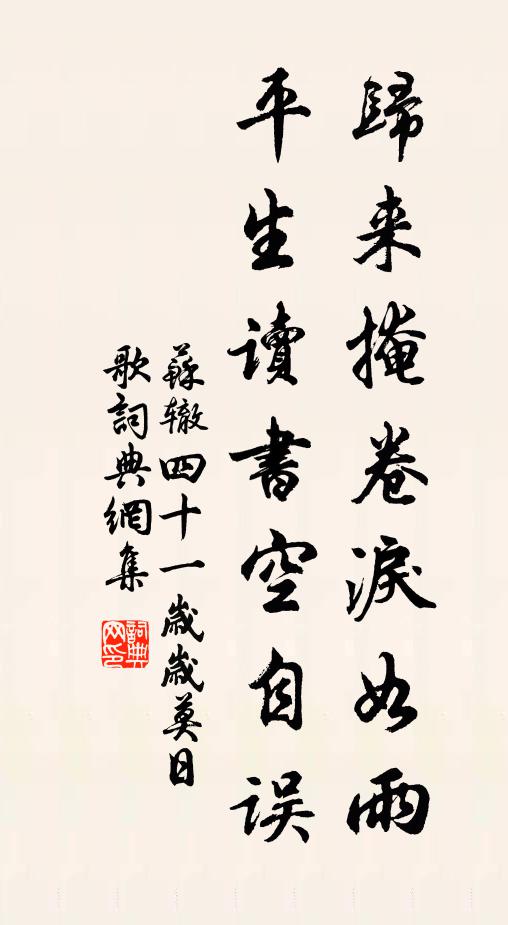 歸来掩卷淚如雨
平生讀書空自误
蘇辙四十一歲歲莫日
歌詞典網集
詞典
网印